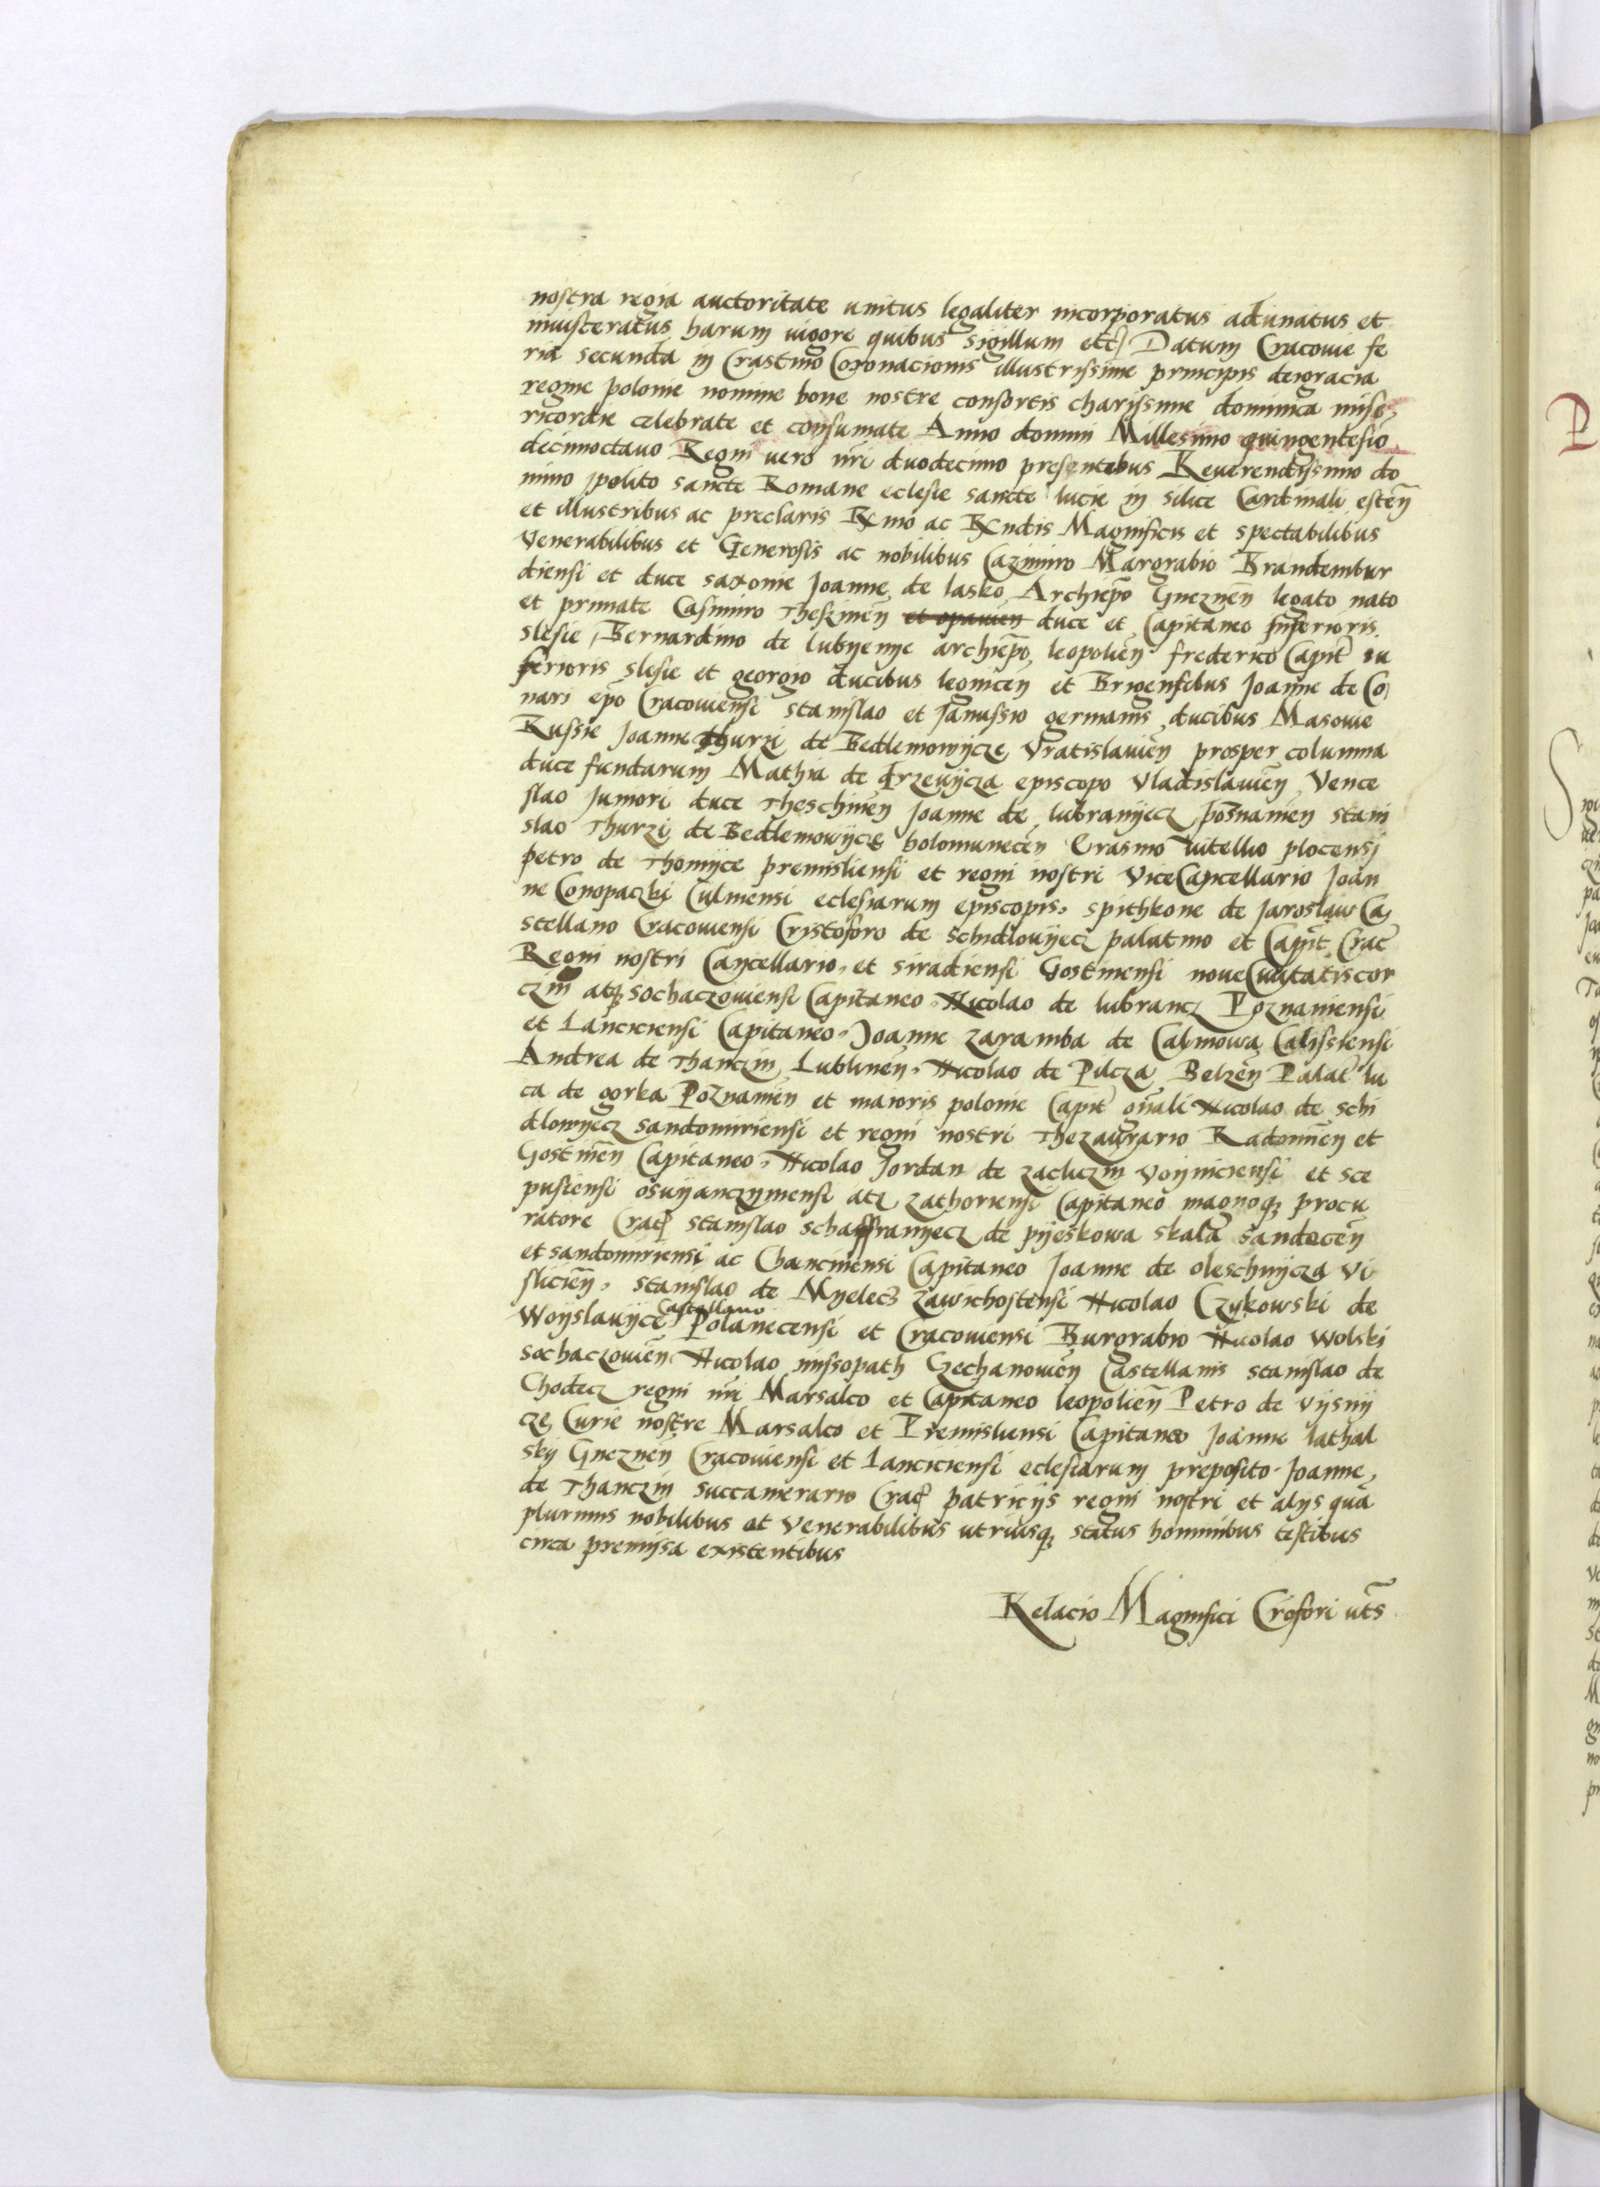 nostra regia auctoritate unitus legaliter incorporatus adunatus et
inuisceratus harum uigore quibus sigillum etc Datum Cracouie fe
ria secunda in Crastino Coronacionis illustrissime principis deigracia
regine polonie nomine bone nostre consortis charissime dominica mise
ricordie celebrate et consumate Anno domini Millesimo quingentesimo
decimooctauo Regni uero nri duodecimo presentebus Reuerendissimo do
mino ipolito sancte Romane eclesie sancte lucie in silice Cardinali esteñ
et illustribus ac preclaris Rmo ac Rndis Magnificis et spectabilibus
Venerabilibus et Generosis ac nobilibus Cazimiro Margrabio Brandembur
diensi et duce saxonie Joanne de lasko Archiepo Gneznen̄ legato nato
et primate Casimiro Theszinen̄ et opauien duce et Capitaneo Inferioris
slesie, Bernardino de lubyenye archiepo leopolien̄ frederico Capit in
ferioris slesie et georgio ducibus legnicen et Brigensibus Joanne de Co
nari epo Cracouiensi stanislao et Janussio germanis ducibus Masouie
Russie Joanne thurzi de Bedlemowycze Vratislauien̄ prosper columna
duce fundarum Mathia de drzewycza episcopo Vladislauien̄ Vence
slao Juniori duce Theschinen̄ Joanne de lubranyecz posnanien stani
slao Thurzi de Bedlemowycze holomunecen̄ Erasmo uitellio plocensi
petro de Thomyce premisliensi et regni nostri ViceCancellario Joan
ne Conopaczki Culmensi eclesiarum episcopis, spithkone de Jaroslaw Ca
stellano Cracouiensi Cristoforo de schidlouyecz palatino et Capit Crac
Regni nostri Cancellario, et siradiensi Gostinensi noueCiuitatiscor
czin atq sochaczouiensi Capitaneo, Nicolao de lubrancz Poznaniensi
et Lanciciensi Capitaneo, Joanne zaramba de Calinowa Calissiensi
Andrea de Thanczin Lublinen̄, Nicolao de Pilcza Belzen̄ Palat lu
ca de gorka Poznanien̄ et maioris polonie Capit gn̄ali Nicolao de schi
dlowyecz sandomiriensi et regni nostri Thezaurario Radomien̄ et
Gostinen̄ Capitaneo, Nicolao Jordan de zacliczin voyniciensi et sce
pusiensi osuyanczymensi atq zathoriensi Capitaneo magnoq procu
ratore Crac stanislao schaffranyecz de pyeskowa skala sandecen̄
et sandomiriensi ac Chancinensi Capitaneo Joanne de oleschnycza Vi
slicien̄, stanislao de Myelecz zawichostensi Nicolao Czikowski de
Woyslavyce Castellano Polanecensi et Cracouiensi Burgrabio Nicolao Wolski
sochaczouien̄ Nicolao nissopath Czechanowien̄ Castellanis stanislao de
Chodecz regni nri Marsalco et Capitaneo leopolien̄ Petro de vysny
cze Curie nostre Marsalco et Premisliensi Capitaneo Joanne lathal
sky Gneznen̄ Cracouiensi et Lanciciensi eclesiarum preposito Joanne
de Thanczin succamerario Crac patricijs regni nostri et alijs quā
plurimis nobilibus et Venerabilibus utriusq status hominibus testibus
circa premissa existentibus
Relacio Magnifici Crisfori uts